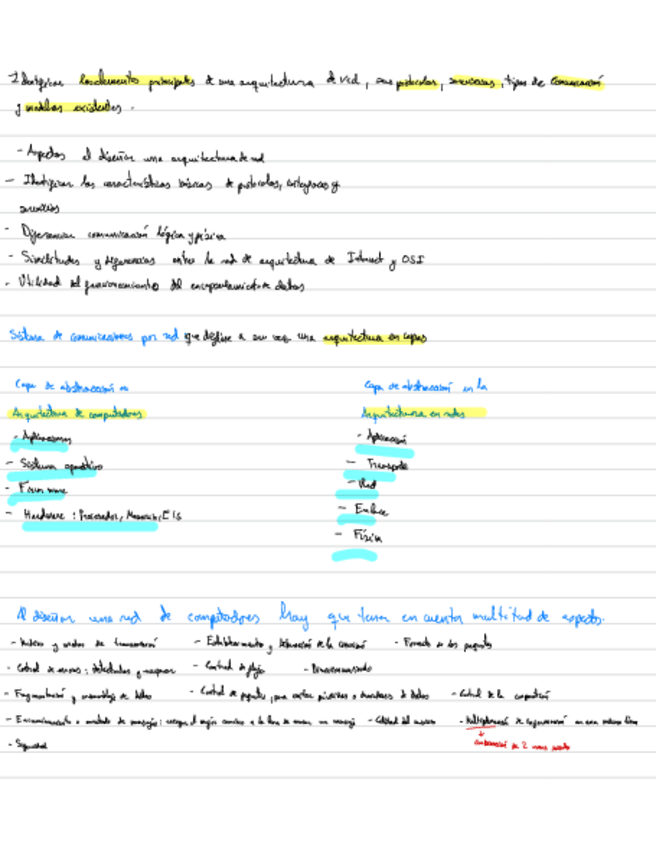 Identificar los elementos principales de una arquitectura de red, sus protocolos, servicios, tipos de comunicación
y modelos existentes.
- Aspectos al diseñar una arquitectura de red
- Identificar las características básicas de protocolos, interfaces y
servicios
- Diferenciar comunicación lógica y física
- Similitudes y diferencias entre la red de arquitectura de Internet y OSI
- Utilidad del funcionamiento del encapsulamiento de datos
Sistema de comunicaciones por red que define a su vez una arquitectura en capas
Capa de abstracción en
Capa de abstracción en la
Arquitectura de computadores
Arquitectura en redes
- Aplicaciones
- Aplicación
- Sistema operativo
- Transporte
- Firmware
- Red
- Hardware : Procesador, Memoria, E/S
- Enlace
- Física
Al diseñar una red de computadores hay que tener en cuenta multitud de aspectos.
- Medios y modos de transmisión
- Establecimiento y liberación de la conexión
- Formato de los paquetes
- Control de errores : detectarlos y recuperar
- Control de flujo
- Direccionamiento
- Fragmentación y ensamblaje de datos
- Control de paquetes, para evitar pérdidas o duplicados de datos
- Control de la congestión
- Encaminamiento o enrutado de mensajes : escoger el mejor camino a la hora de enviar un mensaje
- Calidad del servicio
- Multiplexación de en una misma línea
- Seguridad
combinación de 2 o más